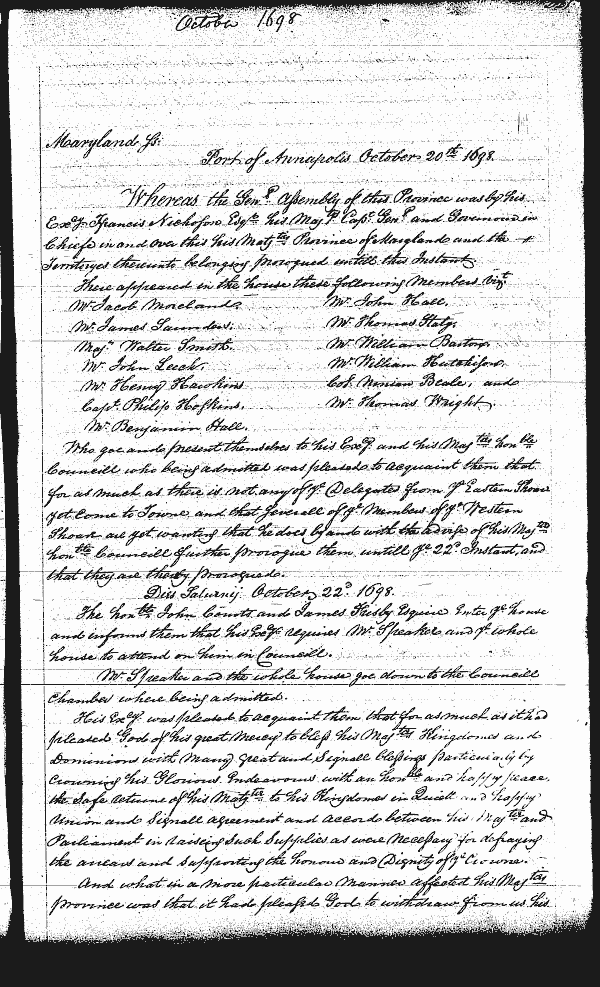 October 1698
Maryland ss:
Port of Annapolis October 20th 1698.
Whereas the Genll Assembly of this Province was by his
Excy Francis Nicholson Esqr his Majts Capt. Genll and Governour in
Chiefe in and over this his Matys Province of Maryland and the
Territoryes thereunto belonging prorogued untill this Instant
There appeared in the house these following Members vizt
Mr Jacob Moreland. Mr John Hall.
Mr James Saunders. Mr Thomas Staly.
Majr Walter Smith. Mr William Barton.
Mr John Leech. Mr William Hutchison.
Mr Henry Hawkins Col. Ninian Beale, and
Capt. Philip Hoskins. Mr Thomas Wright.
Mr Benjamin Hall.
Who goe and present themselves to his Excy and his Majtys honble
Councill who being admitted was pleased to acquaint them that
for as much as there is not any of ye Delegates from ye Eastern Shoar
yet come to Towne and that severall of ye Members of ye Western
Shoar are yet wanting that he does by and with the advise of his Majtys
honble Councill further prorogue them, untill ye 22d Instant, and
that they are thereby prorogued.
Dies Saturnij October 22d 1698.
The honble John Courts and James Frisby Esquire Enter ye house
and informs them that his Excy requires Mr Speaker and ye whole
house to attend on him in Councill.
Mr Speaker and the whole house goe down to the Councill
Chamber where being admitted.
His Excy was pleased to acquaint them that for as much as it had
pleased God of his great Mercy to bless his Majtys Kingdomes and
Dominions with Many great and Signall blessings particularly by
Crowning his Glorious Endeavours with an honble and happy peace.
the Safe returne of his Matys to his Kingdomes in Quiett and happy
Union and Signall agreement and accord between his Majtys and
Parliament in raising Such Supplies as were necessary for defraying
the arrears and supporting the honour and Dignity of ye Crowne.
And what in a more particular Manner affected his Majtys
province was that it had pleased God to withdraw from us his